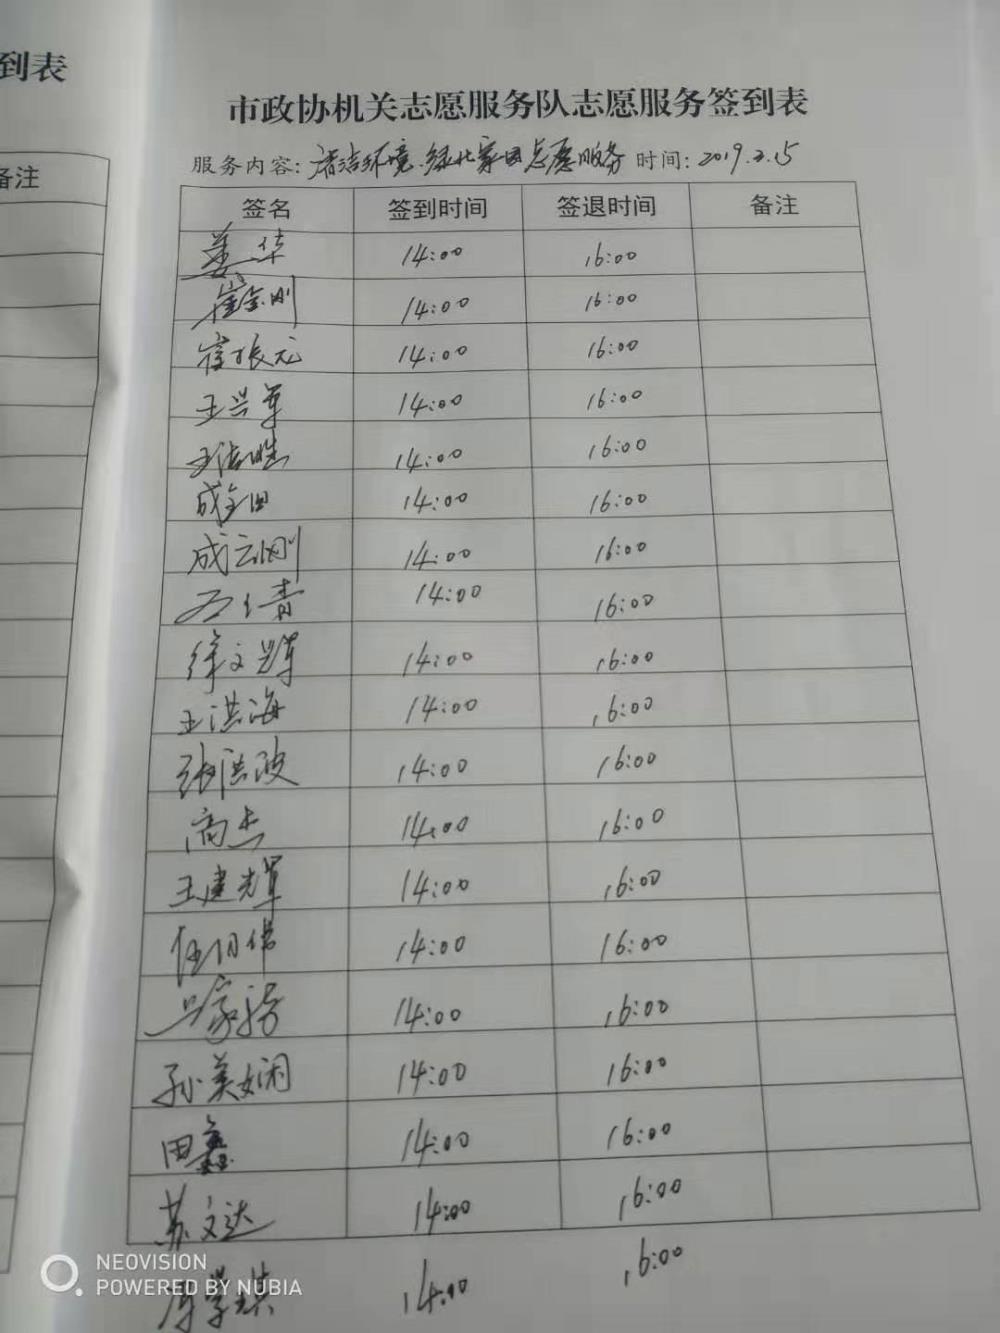 到表
备注
市政协机关志愿服务队志愿服务签到表
服务内容: 清洁环境.绿化家园志愿服务 时间: 2019.2.15
签名 签到时间 签退时间 备注
姜华 14:00 16:00
崔金刚 14:00 16:00
崔振元 14:00 16:00
王兴军 14:00 16:00
14:00 16:00
成全田 14:00 16:00
成云刚 14:00 16:00
14:00 16:00
徐文军 14:00 16:00
王洪海 14:00 16:00
张洪波 14:00 16:00
高杰 14:00 16:00
王建辉 14:00 16:00
任伟 14:00 16:00
14:00 16:00
孙美娴 14:00 16:00
田鑫 14:00 16:00
苏文达 14:00 16:00
14:00 16:00
NEOVISION
POWERED BY NUBIA